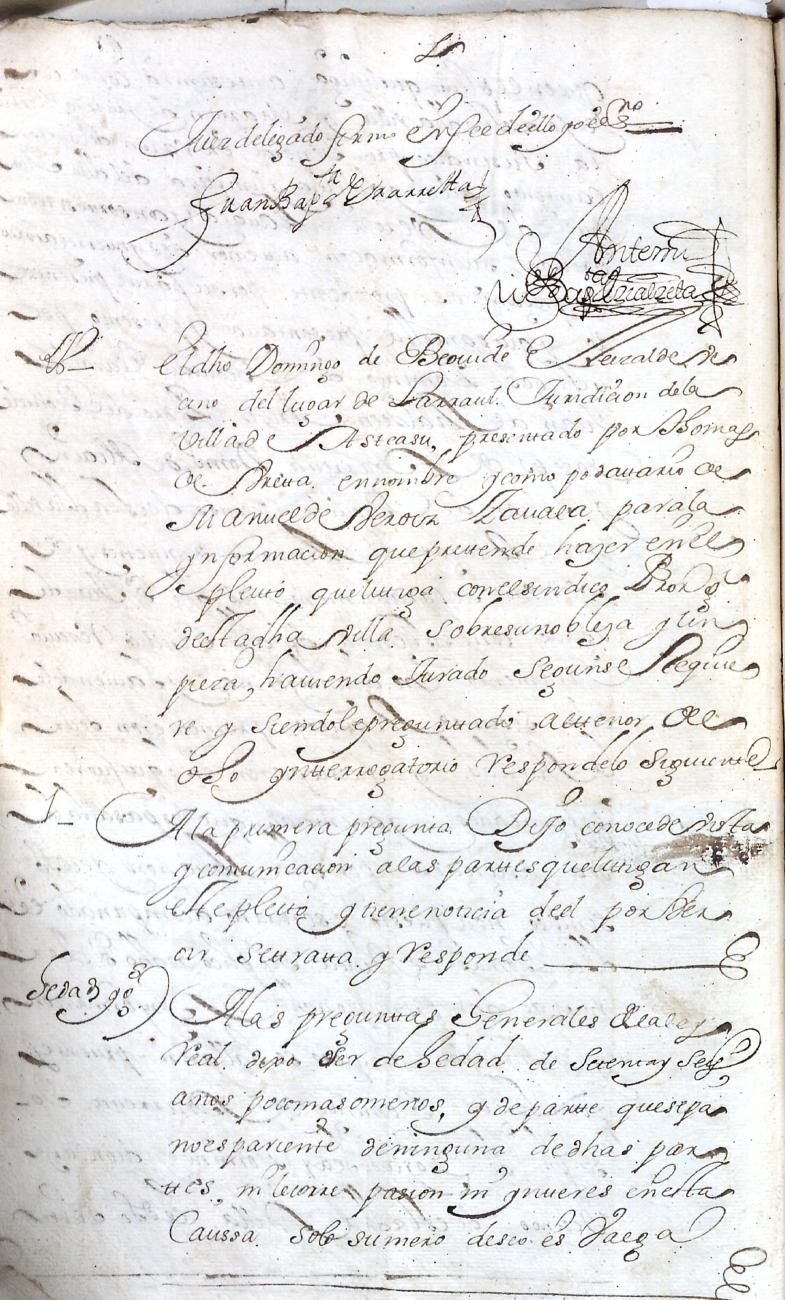 Juez delegado firmo e Yo en fee de ello yo el essno
Juan Bapta de Yzarretta
Antemi
El dho Domingo de Beovide Elizalde ve
cino del lugar de Larraul Juridicion dela
Villa de Asteasu, presentado por Thomas
de en nombre y como podattario de
Manuel de Zavala parala
ynformacion que prettende hazer en el
pleito que littiga con el sindico Pror gl
destta dha villa sobre su nobleza y lim
pieza, haviendo Jurado Segun se Requie
re y siendole preguntado al ttenor del
dho ynterrogatorio respondelo Siguiente
1 A la primera pregunta Dijo conoce de vista
y comunicacion a las parttes que littigan
este pleito y tiene noticia deel por ver
oir se tratta y Responde
hedad y go A las preguntas Generales dela ley
Real dixo ser de hedad de Setenta y Seis
años poco mas o menos, y de partte que sepa
no es pariente de ninguna de dhas par
ttes, ni le corre pasion ni ynteres en esta
Caussa solo su mero deseo es Valga